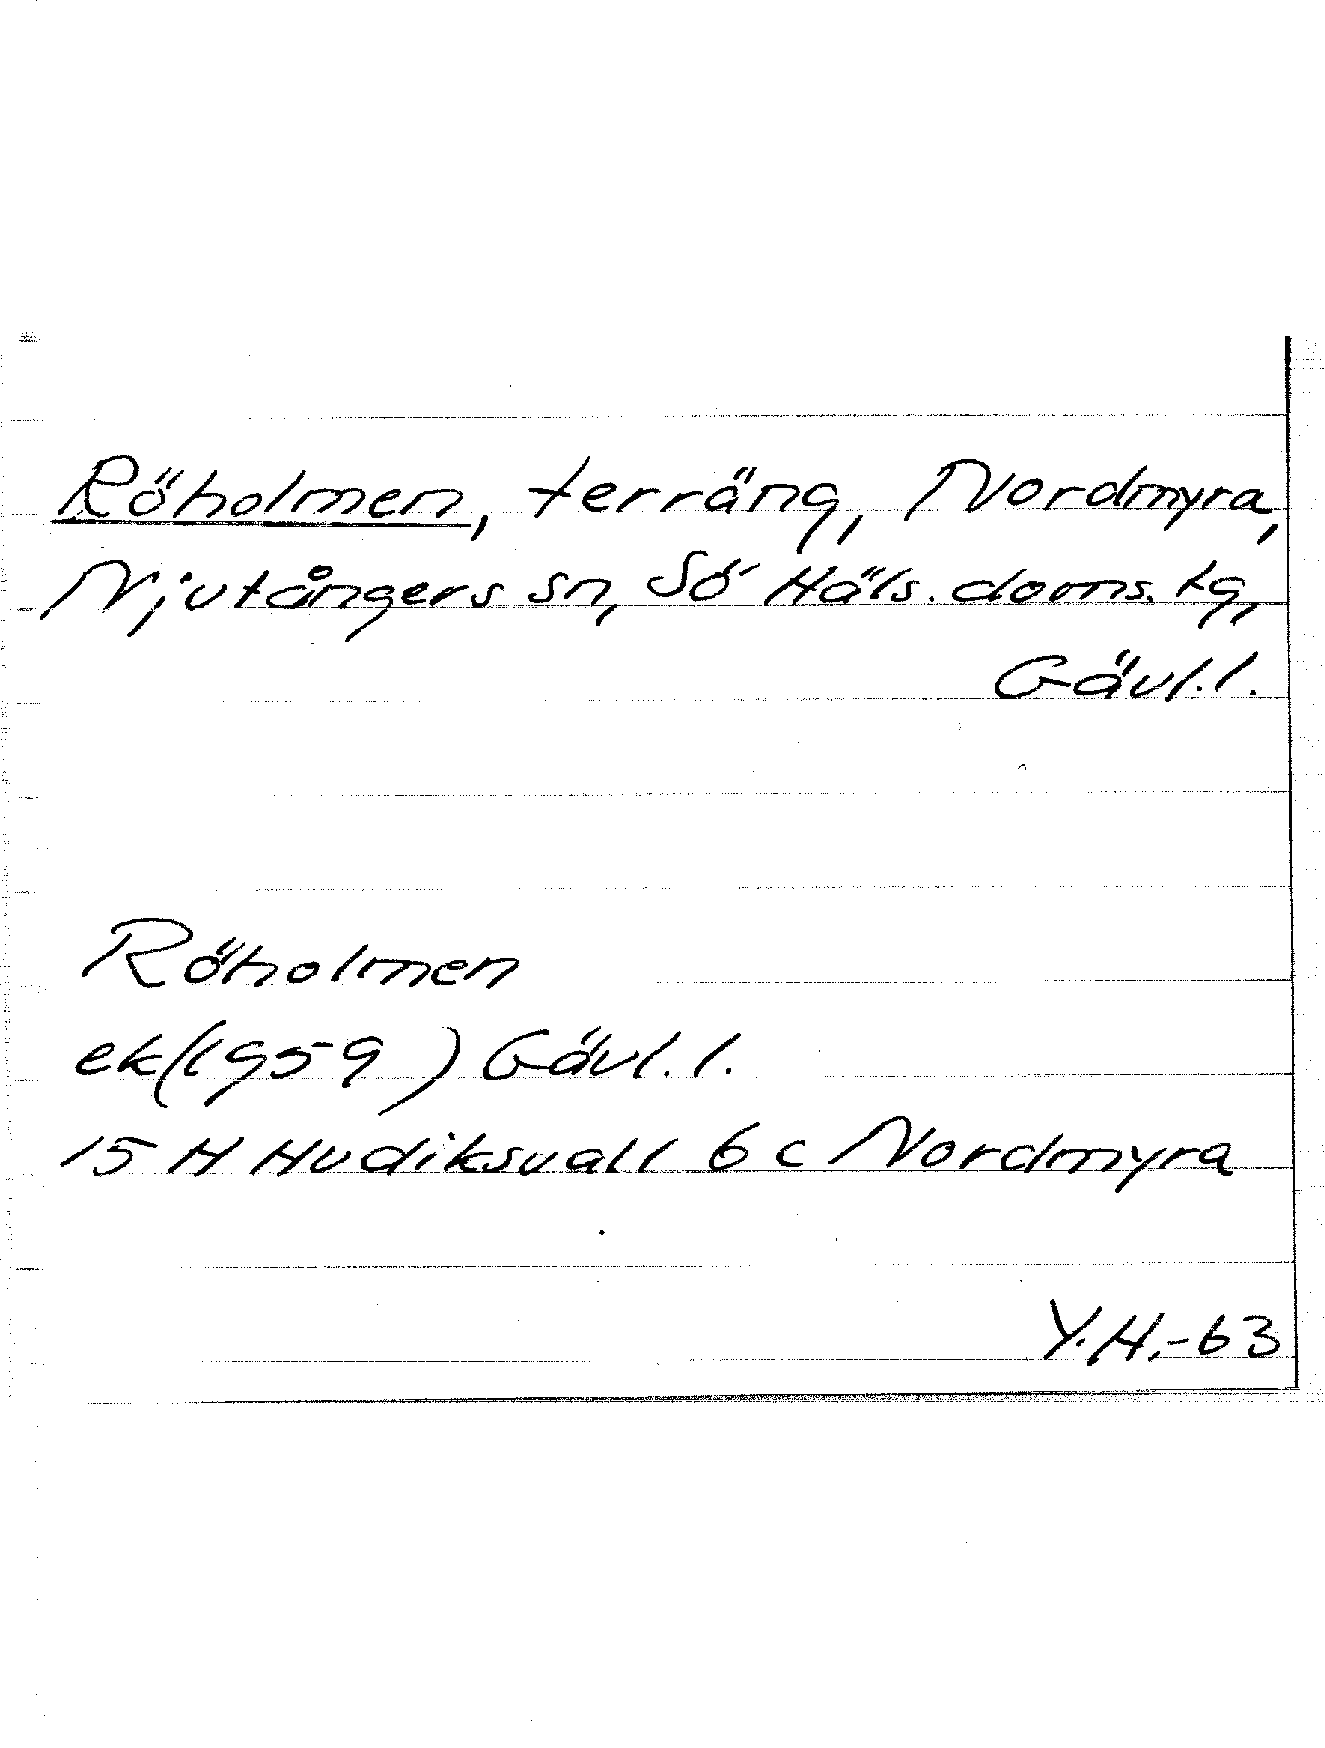 Röholmen, terräng, Nordmyra,
Njutångers sn, Sö Häls. doms. tg,
Gävl. l.
Röholmen
ek (1959) Gävl. l.
15 H Hudiksvall 6 c Nordmyra
Y.H.-63